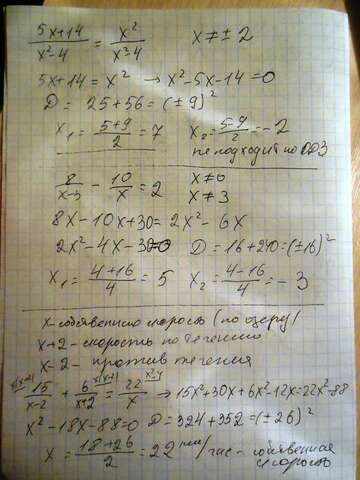 (5x+14)/(x²-4) = x²/(x²-4)   x ≠ ±2
5x+14 = x² → x²-5x-14=0
D = 25+56=(±9)²
x₁ = (5+9)/2 = 7   x₂ = (5-9)/2 = -2
не подходит по ОДЗ
8/(x-3) - 10/x = 2   x≠0
x≠3
8x-10x+30=2x²-6x
2x²-4x-30=0   D=16+240=(±16)²
x₁ = (4+16)/4 = 5   x₂ = (4-16)/4 = -3
x-собственная скорость (по озеру)
x+2-скорость по течению
x-2- против течения
15/(x-2) + 6/(x+2) = 22/x → 15x²+30x+6x²-12x=22x²-88
x²-18x-88=0   D=324+352=(±26)²
x = (18+26)/2 = 22 км/час - собственная
скорость